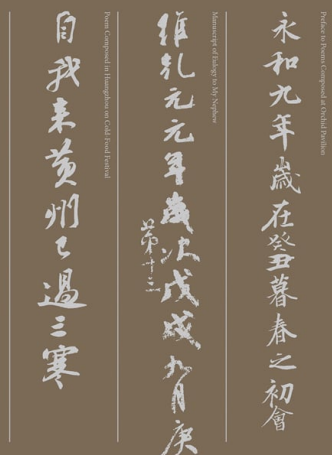 Preface to Poems Composed at Orchid Pavilion
永和九年歲在癸丑暮春之初會
Manuscript of Eulogy to My Nephew
維乹元元年歲次戊戌九月庚
苐十三
Poem Composed in Huangzhou on Cold Food Festival
自我来黄州已過三寒